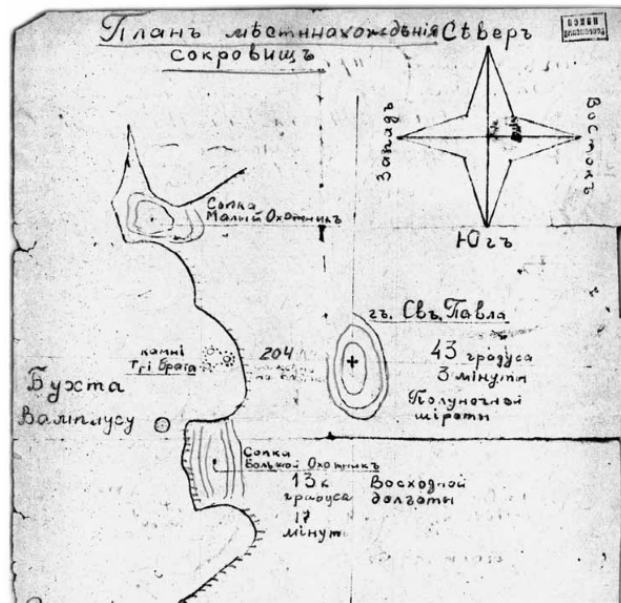 Планъ мѣстинахождѣнія
сокровищъ
Сѣверъ
Западъ
Востокъ
Югъ
Сопка
Малый Охотникъ
гъ. Свъ. Павла
камні
Трі брата
204
43 градуса
3 минуты
Полуночной
шіроты
Бухта
Вамплусу
Сопка
Большой Охотникъ
13к
градуса
17
мінут
Восходной
долготы